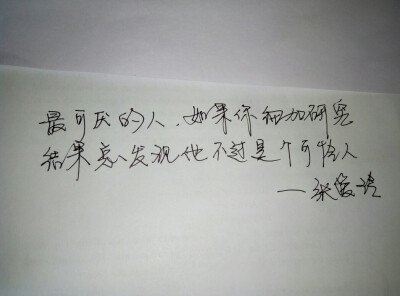 最可厌的人,如果你细加研究
结果总发现他不过是个可怜人
——张爱玲